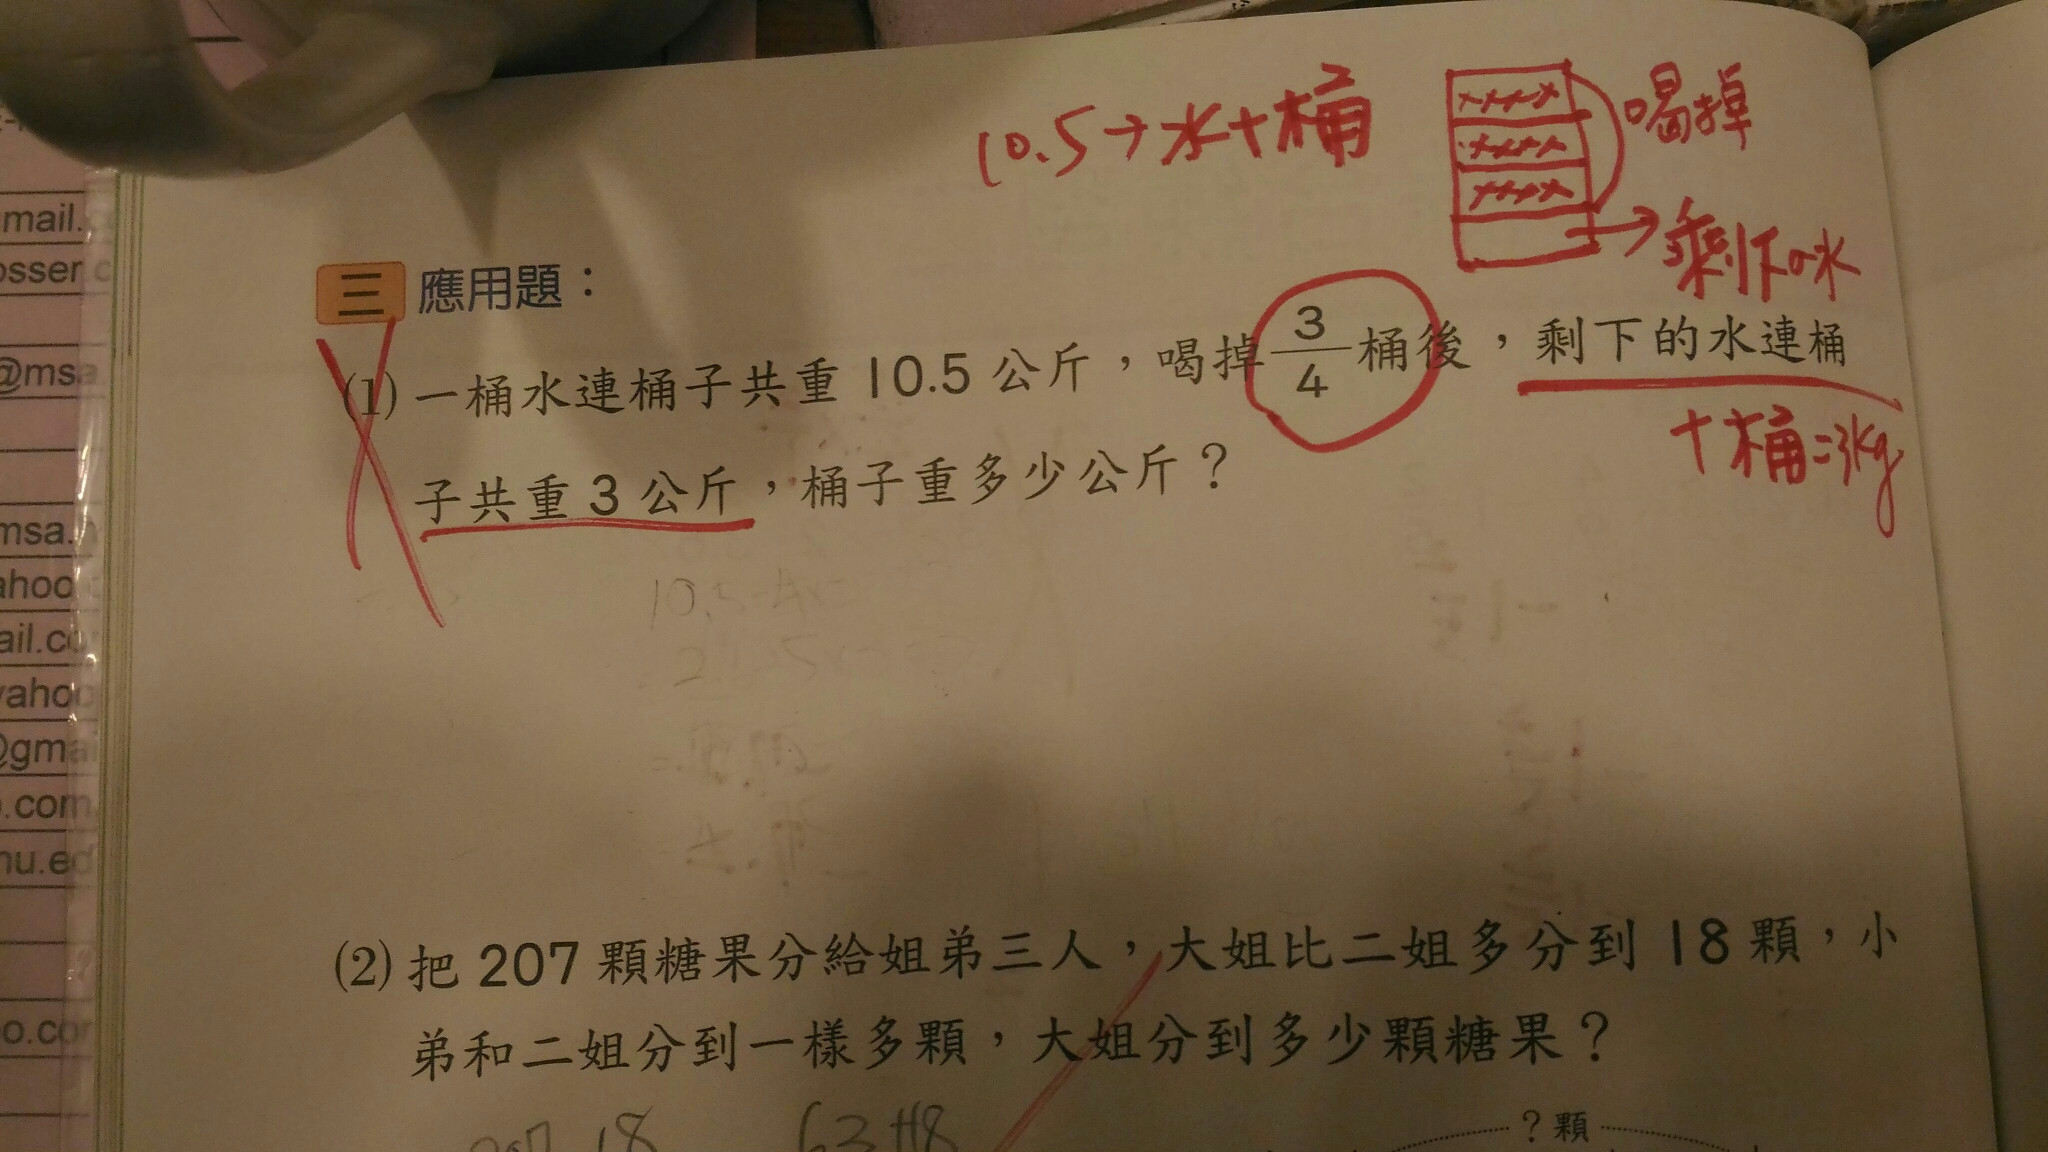 10.5→水+桶
喝掉
剩下水
三 應用題：
(1) 一桶水連桶子共重 10.5 公斤，喝掉 3/4 桶後，剩下的水連桶
+桶=3kg
子共重 3 公斤，桶子重多少公斤？
(2) 把 207 顆糖果分給姐弟三人，大姐比二姐多分到 18 顆，小
弟和二姐分到一樣多顆，大姐分到多少顆糖果？
207 18
63+18
？顆
mail.
osser.c
@msa
msa.
ahoo
ail.co
yahoo
@gmai
.com
nu.ed
oo.cor